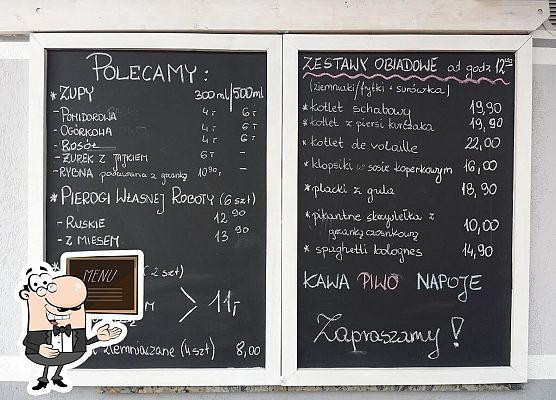 POLECAMY:
* ZUPY 300ml/500ml
- POMIDOROWA 4,- 6,-
- OGÓRKOWA 4,- 6,-
- ROSÓŁ 4,- 6,-
- ŻUREK Z JAJKIEM 6,- -
- RYBNA podawana z grzanką 10,90,-
* PIEROGI WŁASNEJ ROBOTY (6 szt)
- RUSKIE 12,90
- Z MIĘSEM 13,90
(2 szt)
> 11,-
ziemniaczane (4 szt) 8,00
MENU
ZESTAWY OBIADOWE od godz. 12:00
(ziemniaki/frytki + surówka)
* kotlet schabowy 19,90
* kotlet z piersi kurczaka 19,90
* kotlet de volaille 22,00
* klopsiki w sosie koperkowym 16,00
* placki z gula 18,90
* pikantne skrzydełka z 10,00
grzanką czosnkową
* spaghetti bolognes 14,90
KAWA PIWO NAPOJE
Zapraszamy!